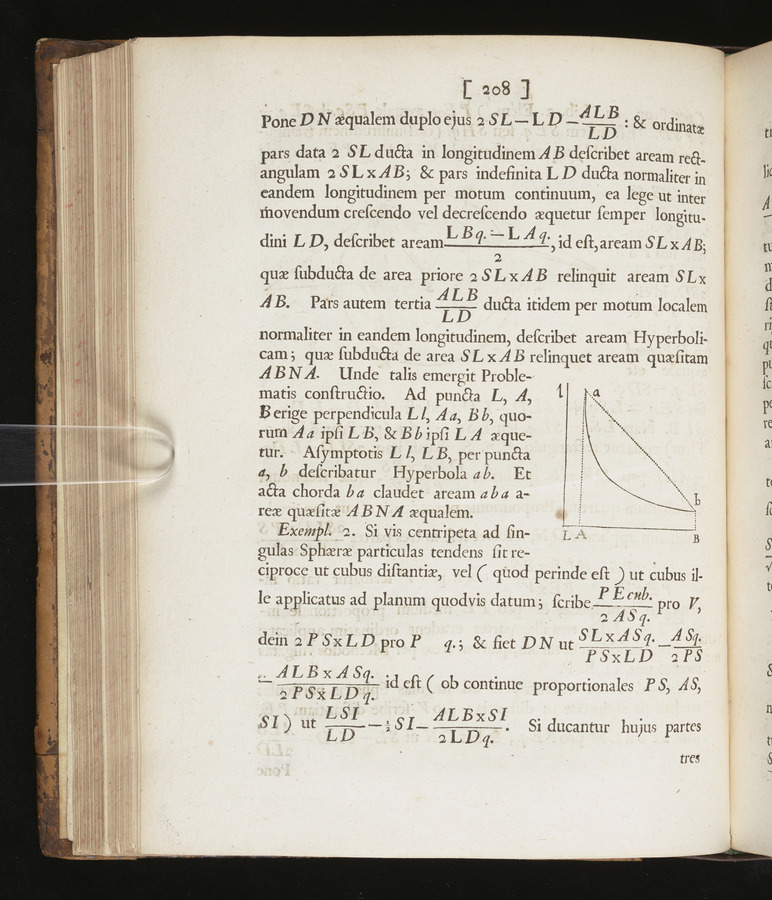 [ 208 ]
Pone DN æqualem duplo ejus 2 SL — LD — ALB/LD : & ordinatæ
pars data 2 SL ducta in longitudinem AB describet aream rect-
angulam 2 SL x AB; & pars indefinita LD ducta normaliter in
eandem longitudinem per motum continuum, ea lege ut inter
movendum crescendo vel decrescendo æquetur semper longitu-
dini LD, describet aream LBq. — LAq./2, id est, aream SL x AB;
quæ subducta de area priore 2 SL x AB relinquit aream SL x
AB. Pars autem tertia ALB/LD ducta itidem per motum localem
normaliter in eandem longitudinem, describet aream Hyperboli-
cam; quæ subducta de area SL x AB relinquet aream quæsitam
ABNA. Unde talis emergit Proble-
matis constructio. Ad puncta L, A,
B erige perpendicula Ll, Aa, Bb, quo-
rum Aa ipsi LB, & Bb ipsi LA æque-
tur. Asymptotis Ll, LB, per puncta
a, b describatur Hyperbola ab. Et
acta chorda ba claudet aream aba a-
reæ quæsitæ ABNA æqualem.
l a
b
L A B
Exempl. 2. Si vis centripeta ad sin-
gulas Sphæræ particulas tendens sit re-
ciproce ut cubus distantiæ, vel ( quod perinde est ) ut cubus il-
le applicatus ad planum quodvis datum; scribe PE cub./2 ASq. pro V,
dein 2 PS x LD pro P q.; & fiet DN ut SL x ASq./PS x LD — ASq./2 PS
— ALB x ASq./2 PS x LDq. id est ( ob continue proportionales PS, AS,
SI ) ut LSI/LD — ½ SI — ALB x SI/2 LDq. Si ducantur hujus partes
tres